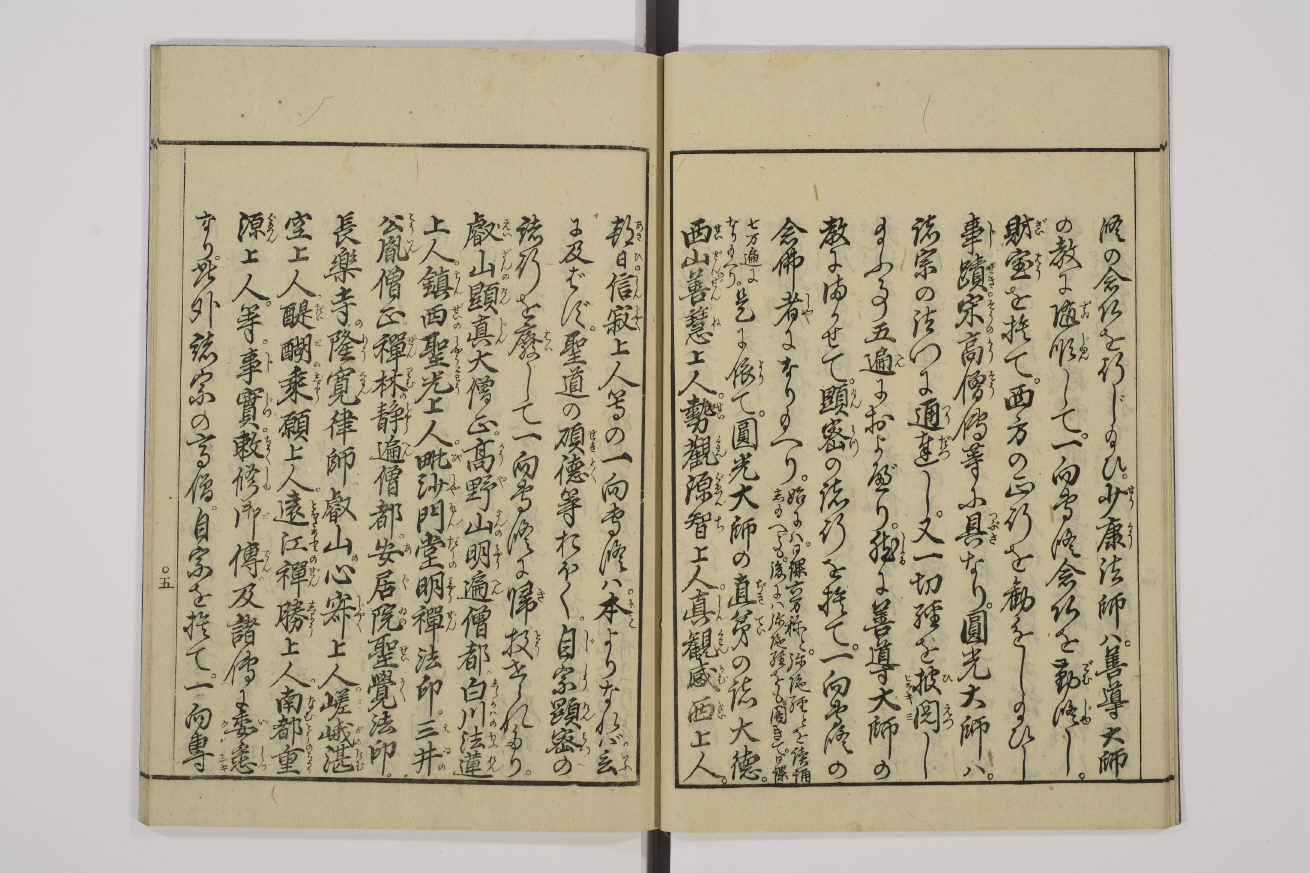 修の念仏を行じ給ひ。少康法師ハ。善導大師
の教に随順して。一向専修念仏を勤修し。
財宝を捨て。西方の正行を勧をし給ひし
事蹟。宋高僧傳等に具なり。圓光大師ハ。
諸宗の法門に通達し。又一切経を披閲し
給ふ事五遍におよべり。然るに善導大師の
教にまかせて。顕密の諸行を捨て。一向専修の
念佛者になり給へり。始にハ日課六万称と弥陀経とを読誦
し給へども。後にハ弥陀経をも閣きて。日課
七万遍に
なり給へり。是に依て。圓光大師の直弟の諸大徳。
西山善慧上人。勢觀源智上人。真觀感西上人。
朝日信寂上人等の一向専修ハ。本よりなれバ云
に及バず。聖道の碩徳等おほく。自宗顕密の
諸行を廃して一向専修に帰投せられたり。
叡山顕真大僧正。高野山明遍僧都。白川法蓮
上人。鎮西聖光上人。毗沙門堂明禪法印。三井
公胤僧正。禪林静遍僧都。安居院聖覺法印。
長樂寺の隆寛律師。叡山の心寂上人。嵯峨湛
空上人。醍醐乗願上人。遠江禪勝上人。南都重
源上人。等。事實敕修御傳及諸傳に委悉
なり。此外諸宗の高僧。自宗を捨て。一向專
五